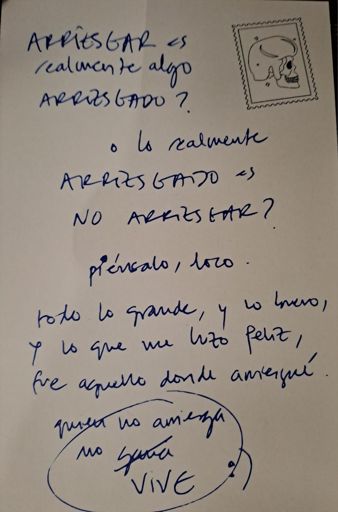 ARRIESGAR es
realmente algo
ARRIESGADO?
o lo realmente
ARRIESGADO es
NO ARRIESGAR?
piénsalo, loco.
todo lo grande, y lo bueno,
y lo que me hizo feliz,
fue aquello donde arriesgué.
quien no arriesga
no gana
VIVE :)